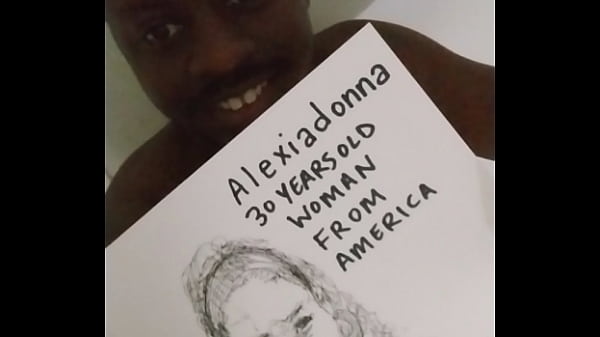 Alexiadonna
30 YEARS OLD
WOMAN
FROM
AMERICA